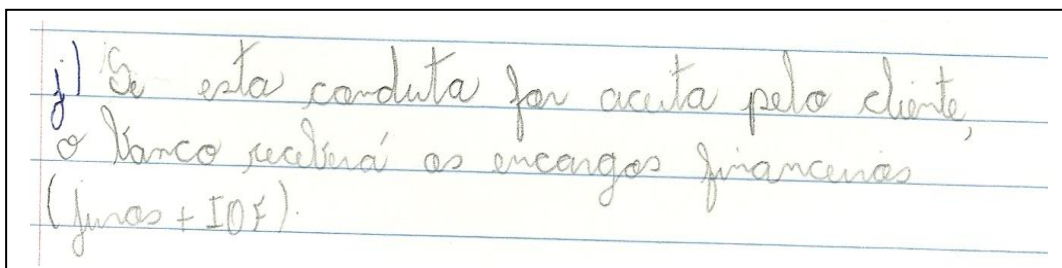 j) Se esta conduta for aceita pelo cliente,
o Banco receberá os encargos financeiros
(juros + IOF).